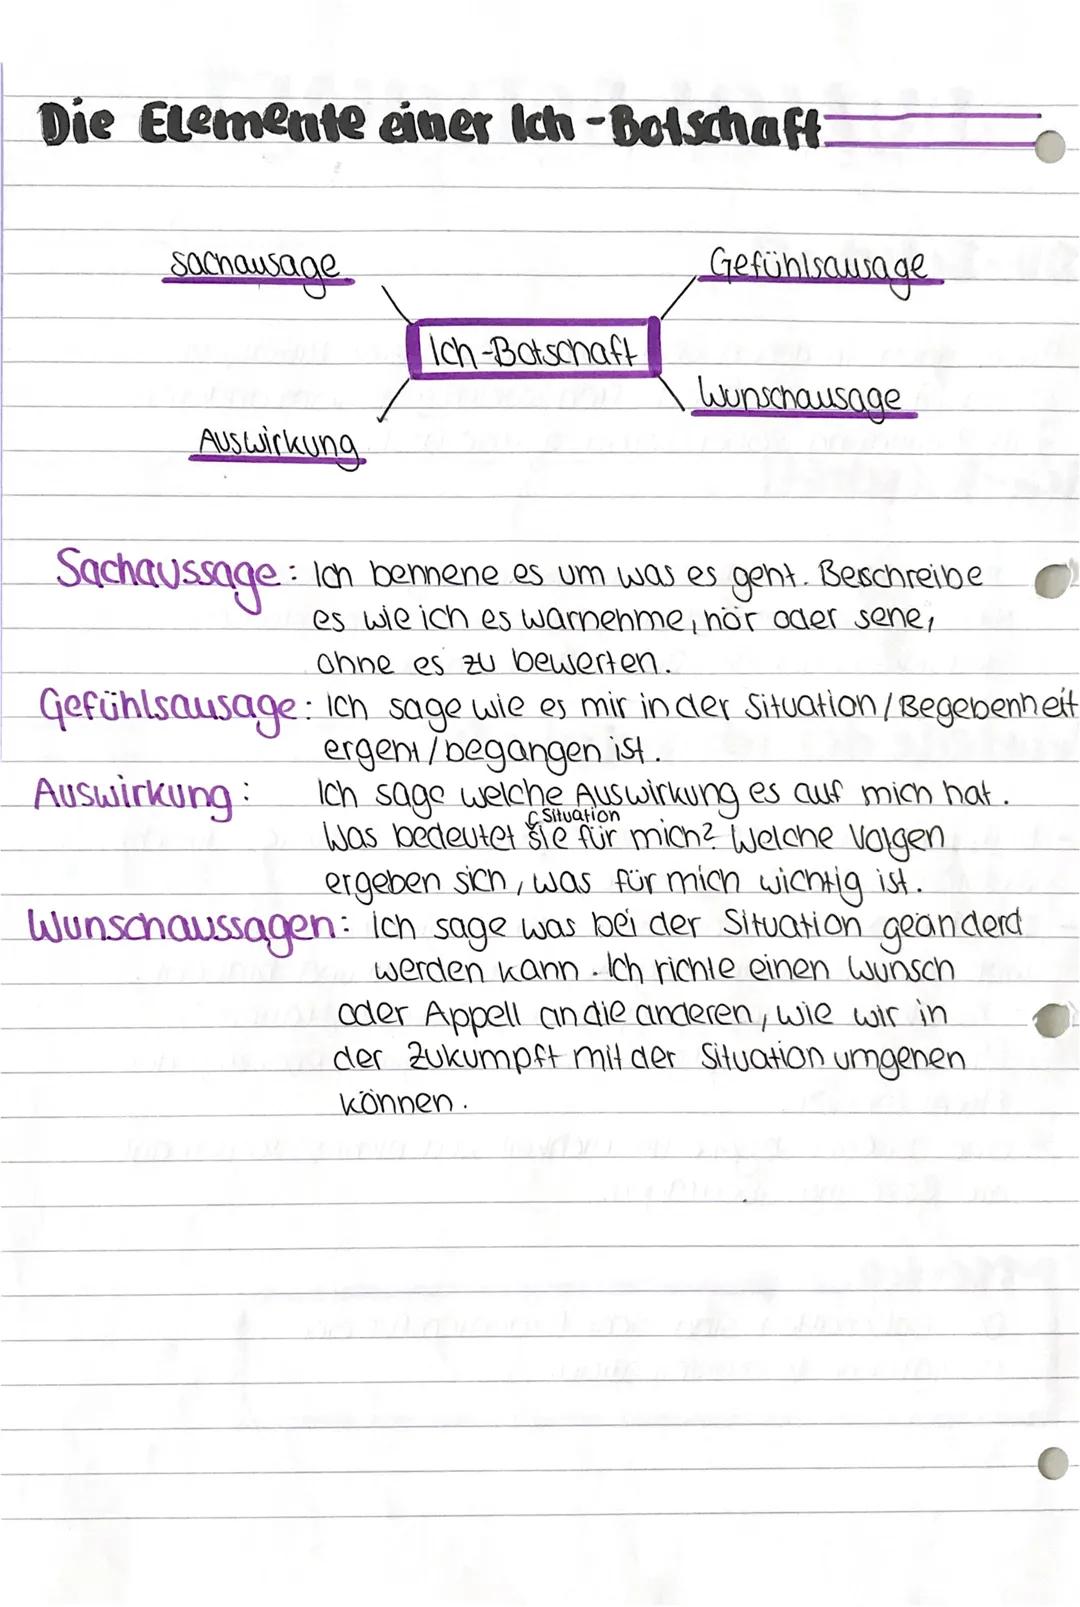 Die Elemente einer Ich-Botschaft
Sachausage
Gefühlsausage
Ich-Botschaft
Wunschausage
Auswirkung
Sachaussage: Ich bennene es um was es geht. Beschreibe
es wie ich es warnehme, hör oder sehe,
ohne es zu bewerten.
Gefühlsausage: Ich sage wie es mir in der Situation/Begebenheit
ergeht/begangen ist.
Auswirkung: Ich sage welche Auswirkung es auf mich hat.
Situation
Was bedeutet sie für mich? Welche Volgen
ergeben sich, was für mich wichtig ist.
Wunschaussagen: Ich sage was bei der Situation geänderd
werden kann. Ich richte einen Wunsch
oder Appell an die anderen, wie wir in
der Zukumpft mit der Situation umgehen
können.